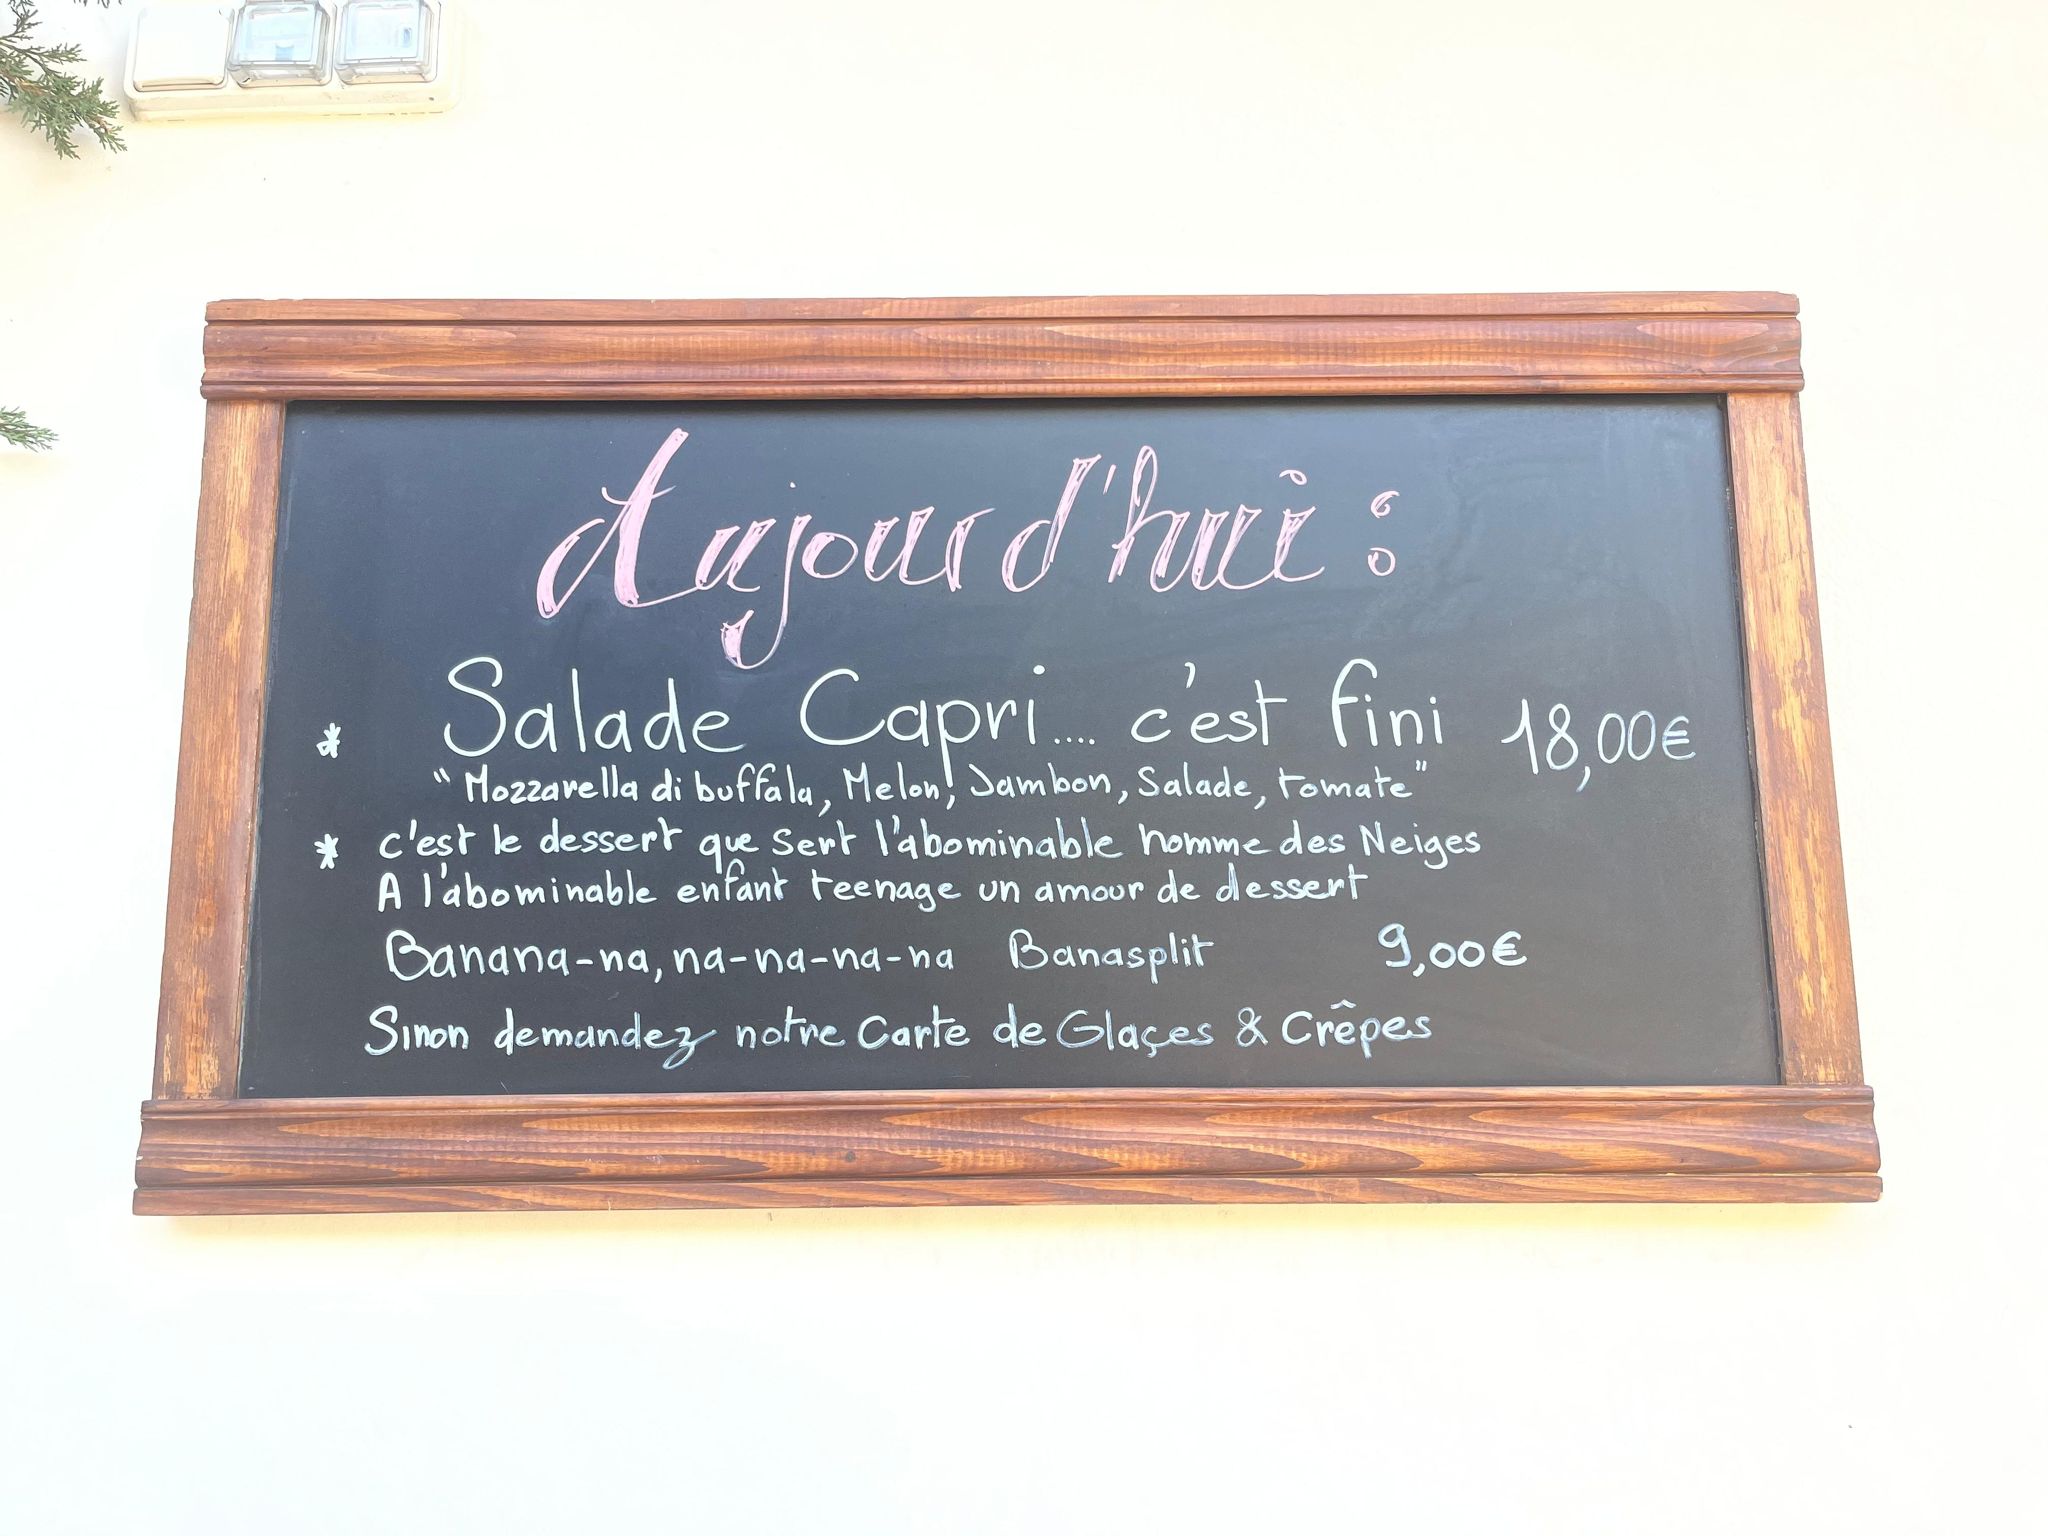 Aujourd'hui :
* Salade Capri.... c'est fini 18,00€
"Mozzarella di buffala, Melon, Jambon, Salade, tomate"
* c'est le dessert que sert l'abominable homme des Neiges
A l'abominable enfant teenage un amour de dessert
Banana-na, na-na-na-na Banasplit 9,00€
Sinon demandez notre Carte de Glaçes & Crêpes